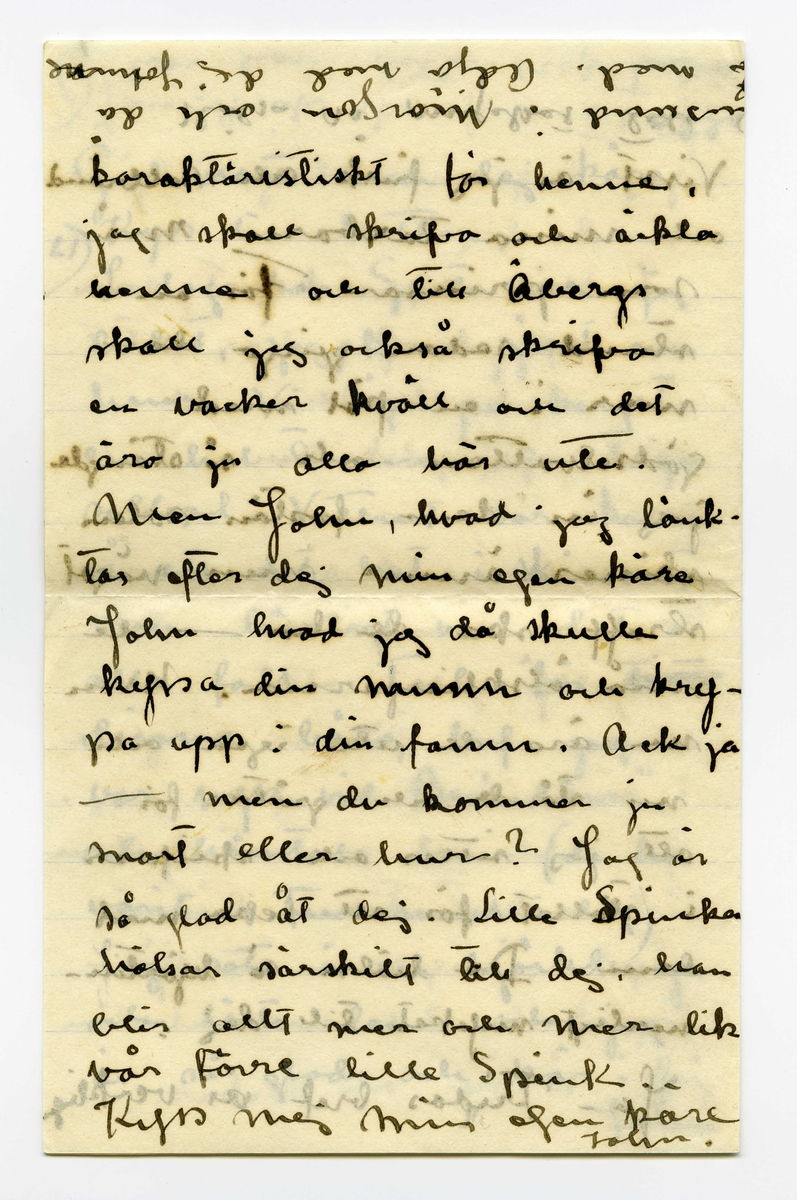 karaktäristiskt för henne,
jag skall skrifva och äckla
henne! och till Åbergs
skall jag också skrifva
en vacker kväll och det
äro ju alla här ute.
Men John, hvad jag länk-
tar efter dej min egen käre
John hvad jag då skulle
kyssa din munn och kry-
pa upp i din famn. Ack ja
— men du kommer ju
snart eller hur? Jag är
så glad åt dej. Lille Spinka
hälsar särskilt till dej, han
blir allt mer och mer lik
vår förre lille Spink..
Kyss mej min egen käre
John.
i Morgon och då
med. Adjö med dej